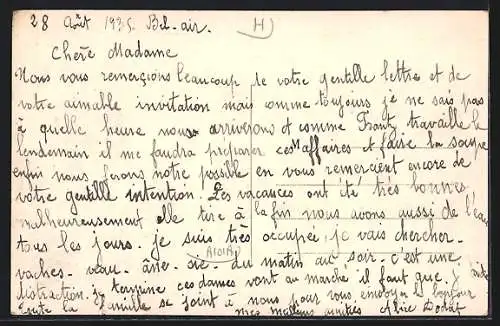 28 Août 1935. Bel-air. H
Chère Madame
Nous vous remerçions beaucoup de votre gentille lettre et de
votre aimable invitation mais comme toujours je ne sais pas
à quelle heure nous arriverons et comme Frantz travaille le
lendemain il me faudra préparer ces affaires et faire la soupe
enfin nous ferons notre possible en vous remerciant encore de
votre gentille intention. Les vacances ont été très bonnes
malheureusement elle tire à la fin nous avons aussi de l'eau
tous les jours. je suis très occupée, je vais chercher.
vaches. veau. âne. du matin au soir. c'est une
distraction. je termine ces dames vont au marché il faut que j'aide
Toute la famille se joint à nous pour vous envoyer le bonjour
mes meilleurs amitiés Dodat